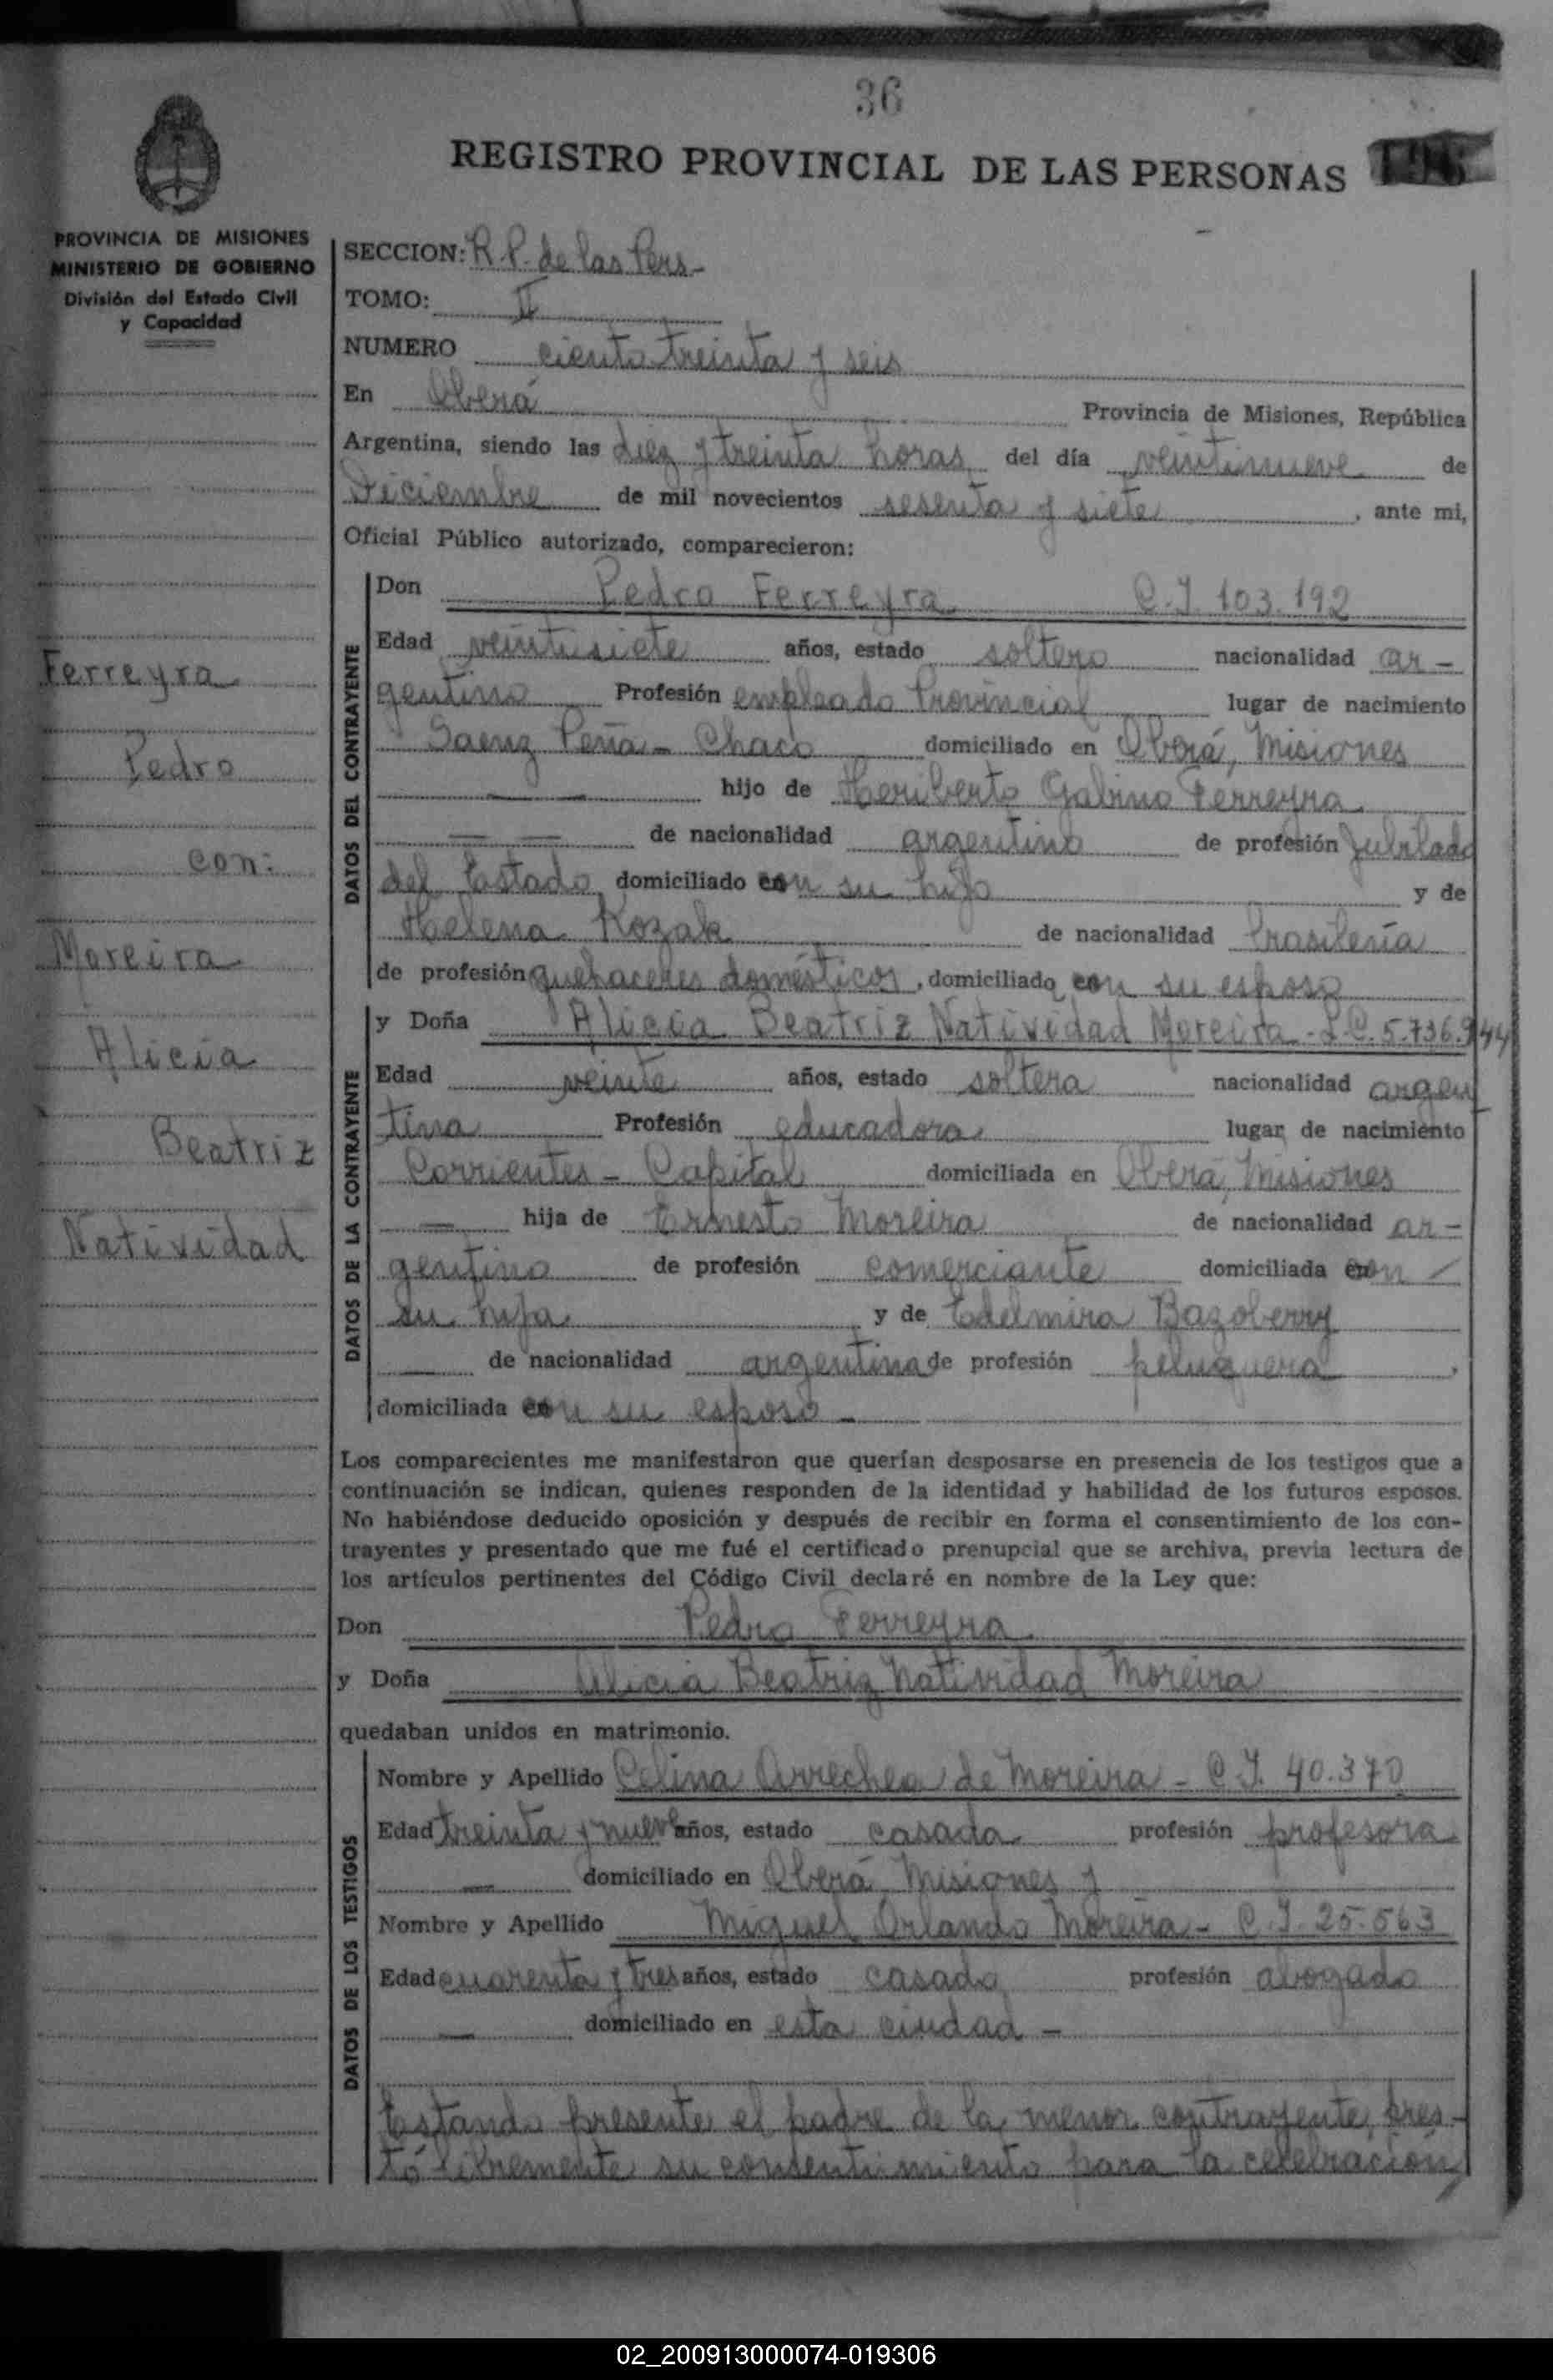 36
REGISTRO PROVINCIAL DE LAS PERSONAS
PROVINCIA DE MISIONES
MINISTERIO DE GOBIERNO
División del Estado Civil
y Capacidad
Ferreyra
Pedro
con:
Moreira
Alicia
Beatriz
Natividad
SECCION: R.P. de las Pers-
TOMO: II
NUMERO ciento treinta y seis
En Oberá Provincia de Misiones, República
Argentina, siendo las diez y treinta horas del día veintinueve de
Diciembre de mil novecientos sesenta y siete, ante mi,
Oficial Público autorizado, comparecieron:
DATOS DEL CONTRAYENTE
Don Pedro Ferreyra C.I. 103.192
Edad veintisiete años, estado soltero nacionalidad ar-
gentino Profesión empleado Provincial lugar de nacimiento
Saenz Peña - Chaco domiciliado en Oberá, Misiones
hijo de Heriberto Gabino Ferreyra
de nacionalidad argentino de profesión Jubilado
del Estado domiciliado con su hijo y de
Helena Kozak de nacionalidad brasileña
de profesión quehaceres domésticos, domiciliado con su esposo
DATOS DE LA CONTRAYENTE
y Doña Alicia Beatriz Natividad Moreira - L.C. 5.736.944
Edad veinte años, estado soltera nacionalidad argen
tina Profesión educadora lugar de nacimiento
Corrientes - Capital domiciliada en Oberá, Misiones
hija de Ernesto Moreira de nacionalidad ar-
gentino de profesión comerciante domiciliada con
su hija y de Edelmira Bazoberry
de nacionalidad argentina de profesión peluquera,
domiciliada con su esposo -
Los comparecientes me manifestaron que querían desposarse en presencia de los testigos que a
continuación se indican, quienes responden de la identidad y habilidad de los futuros esposos.
No habiéndose deducido oposición y después de recibir en forma el consentimiento de los con-
trayentes y presentado que me fué el certificado prenupcial que se archiva, previa lectura de
los artículos pertinentes del Código Civil declaré en nombre de la Ley que:
Don Pedro Ferreyra
y Doña Alicia Beatriz Natividad Moreira
quedaban unidos en matrimonio.
DATOS DE LOS TESTIGOS
Nombre y Apellido Celina Arrechea de Moreira - C.I. 40.370
Edad treinta y nueve años, estado casada profesión profesora
domiciliado en Oberá Misiones y
Nombre y Apellido Miguel Orlando Moreira - C.I. 25.563
Edad cuarenta y tres años, estado casado profesión abogado
domiciliado en esta ciudad -
Estando presente el padre de la menor contrayente, pres-
tó libremente su consentimiento para la celebración
02_200913000074-019306